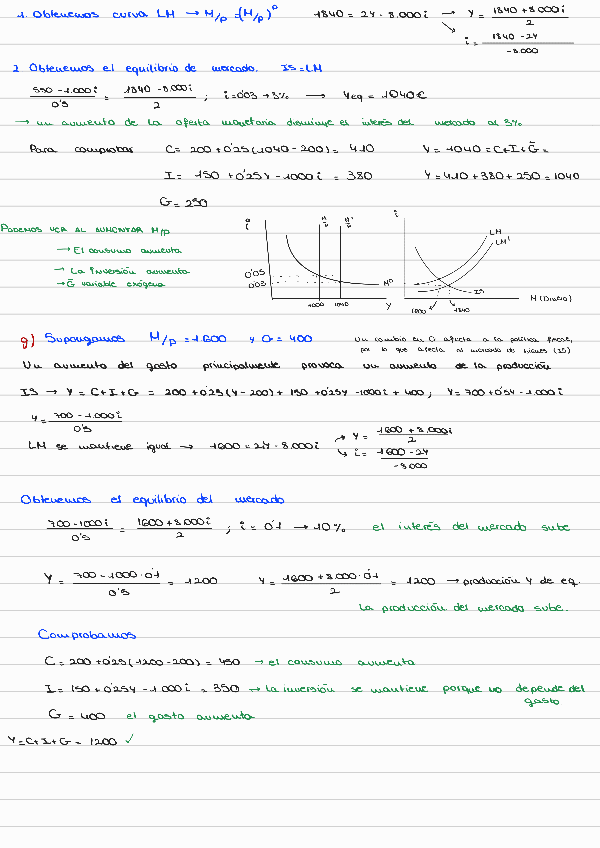 1. Obtenemos curva LM → M/p = (M/p)ᴰ 1840 = 2Y - 8.000i → Y = 1840 + 8000i / 2
↘ i = 1840 - 2Y / -8.000
2 Obtenemos el equilibrio de mercado. IS = LM
550 - 1.000i / 0'5 = 1840 - 8.000i / 2 ; i = 0'03 → 3% → Yeq = 1040€
→ un aumento de la oferta monetaria disminuye el interés del mercado al 3%
Para comprobar C = 200 + 0'25(1040 - 200) = 410 Y = 1040 = C + I + Ḡ =
I = 150 + 0'25Y - 1000i = 380 Y = 410 + 380 + 250 = 1040
G = 250
Podemos ver al aumentar M/p
→ El consumo aumenta
→ La inversión aumenta
→ Ḡ variable exógena
i
i
LM
LM'
0'05
0'03
Mᴰ
IS
Y
M (Dinero)
g) Supongamos M/p = 1.600 y G = 400 Un cambio en G afecta a la política fiscal,
por lo que afecta al mercado de bienes (IS)
Un aumento del gasto principalmente provoca un aumento de la producción
IS → Y = C + I + G = 200 + 0'25(Y - 200) + 150 + 0'25Y - 1000i + 400; Y = 700 + 0'5Y - 1.000i
Y = 700 - 1.000i / 0'5
LM se mantiene igual → 1600 = 2Y - 8.000i → Y = 1600 + 8.000i / 2
↳ i = 1600 - 2Y / -8.000
Obtenemos el equilibrio del mercado
700 - 1000i / 0'5 = 1600 + 8.000i / 2 ; i = 0'1 → 10% el interés del mercado sube
Y = 700 - 1000·0'1 / 0'5 = 1200 Y = 1600 + 8.000·0'1 / 2 = 1200 → producción Y de eq.
La producción del mercado sube.
Comprobamos
C = 200 + 0'25(1200 - 200) = 450 → el consumo aumenta
I = 150 + 0'25Y - 1000i = 350 → La inversión se mantiene porque no depende del
gasto
G = 400 el gasto aumenta
Y = C + I + G = 1200 ✓